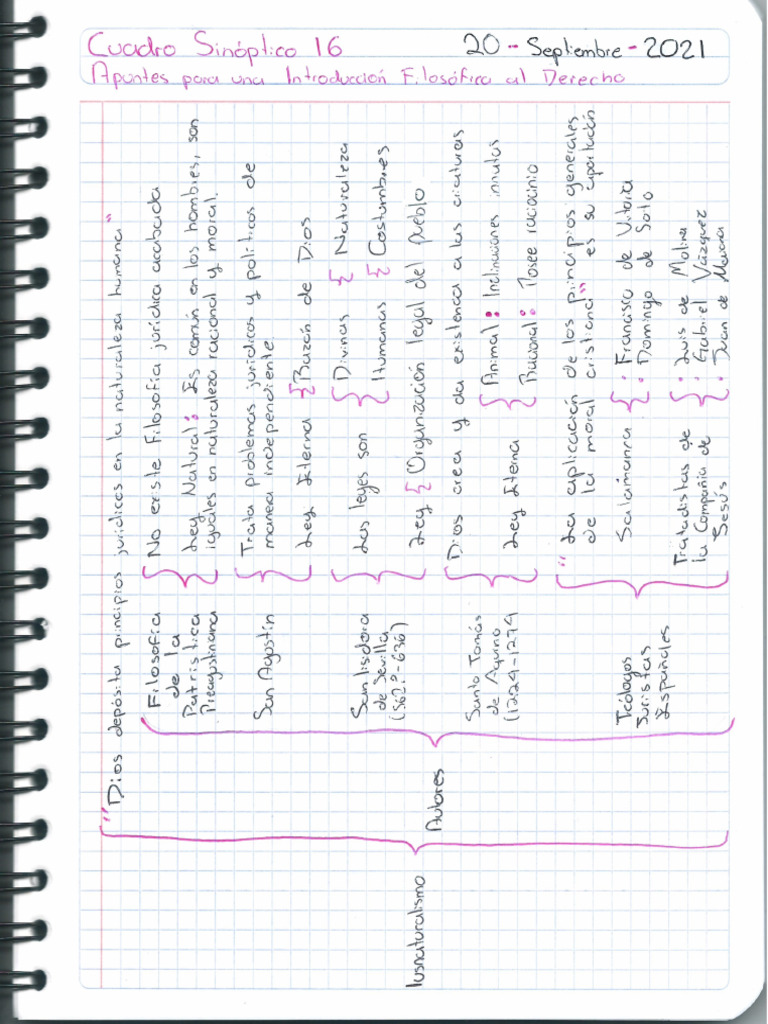 Cuadro Sinóptico 16
20 - Septiembre - 2021
Apuntes para una Introducción Filosófica al Derecho
Iusnaturalismo
"Dios deposita principios jurídicos en la naturaleza humana"
Autores
Filosofía
de la
Patrística
Preagustiniana
No existe Filosofía jurídica acabada
Ley Natural: Es común en los hombres, son
iguales en naturaleza racional y moral.
San Agustín
Trata problemas jurídicos y políticos de
manera independiente
Ley Eterna { Razón de Dios
San Isidoro
de Sevilla
(562?-636)
Las leyes son
Divinas { Naturaleza
Humanas { Costumbres
Ley { Organización legal del pueblo
Santo Tomás
de Aquino
(1224-1274
Dios crea y da existencia a las criaturas
Ley Eterna
Animal: Inclinaciones innatas
Racional: Posee raciocinio
Teólogos
Juristas
Españoles
"La aplicación de los principios generales
de la moral cristiana" es su aportación
Salamanca
: Francisco de Vitoria
: Domingo de Soto
Tratadistas de
la Compañía de
Jesús
: Luis de Molina
: Gabriel Vázquez
: Juan de Mariana